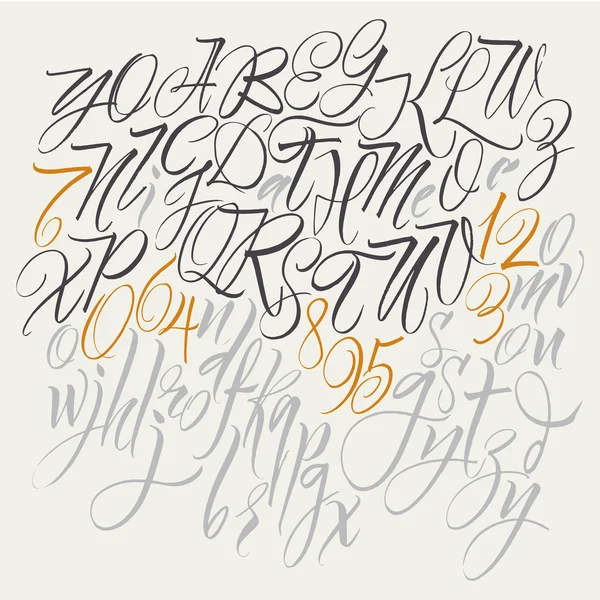 Y O A B E G K L W
7 N i G D a T H M e O c Z
X P Q R S T U W 1 2 o
0 6 4 n 8 3 m v
o r d 9 5 g s s t o n
w j h l j r o f k a p y t z d
b r p g x y